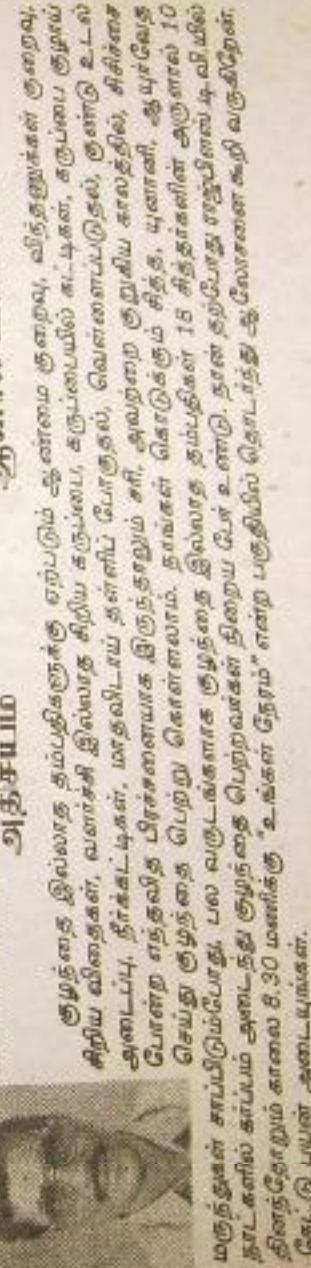 அதிசயம்
குழந்தை இல்லாத தம்பதிகளுக்கு ஏற்படும் ஆண்மை குறைவு, விந்தணுக்கள் குறைவு,
சிறிய விதைகள், வளர்ச்சி இல்லாத சிறிய கருப்பை, கருப்பையில் கட்டிகள், கருப்பை குழாய்
அடைப்பு, நீர்க்கட்டிகள், மாதவிடாய் தள்ளிப் போகுதல், வெள்ளைப்படுதல், குண்டு உடல்
போன்ற எந்தவித பிரச்சனையாக இருந்தாலும் சரி, அவற்றை குறுகிய காலத்தில், சிகிச்சை
செய்து குழந்தை பெற்று கொள்ளலாம். நாங்கள் கொடுக்கும் சித்த, யுனானி, ஆயுர்வேத
மருந்துகள் சாப்பிடும்போது, பல வருடங்களாக குழந்தை இல்லாத தம்பதிகள் 18 சித்தர்களின் அருளால் 10
நாட்களில் கர்ப்பம் அடைந்து குழந்தை பெற்றவர்கள் நிறைய பேர் உண்டு. நான் தற்போது ராஜ்பிளஸ் டி.வி.யில்
தினந்தோறும் காலை 8.30 மணிக்கு "உங்கள் நேரம்" என்ற பகுதியில் தொடர்ந்து ஆலோசனை கூறி வருகிறேன்.
கேட்டு பயன் அடையுங்கள்.